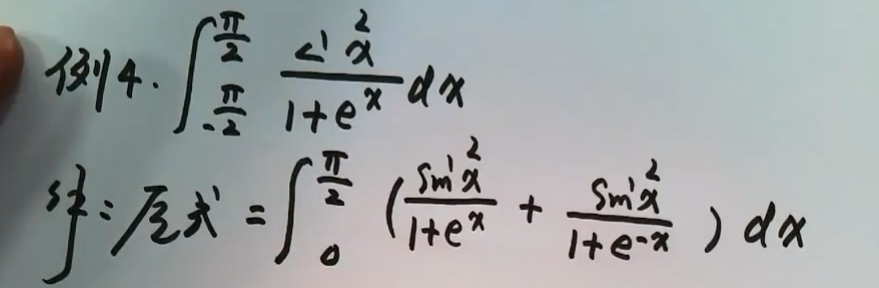 例4. ∫_{-π/2}^{π/2} sin²x/(1+e^x) dx
解:原式 = ∫_0^{π/2} (sin²x/(1+e^x) + sin²x/(1+e^{-x})) dx